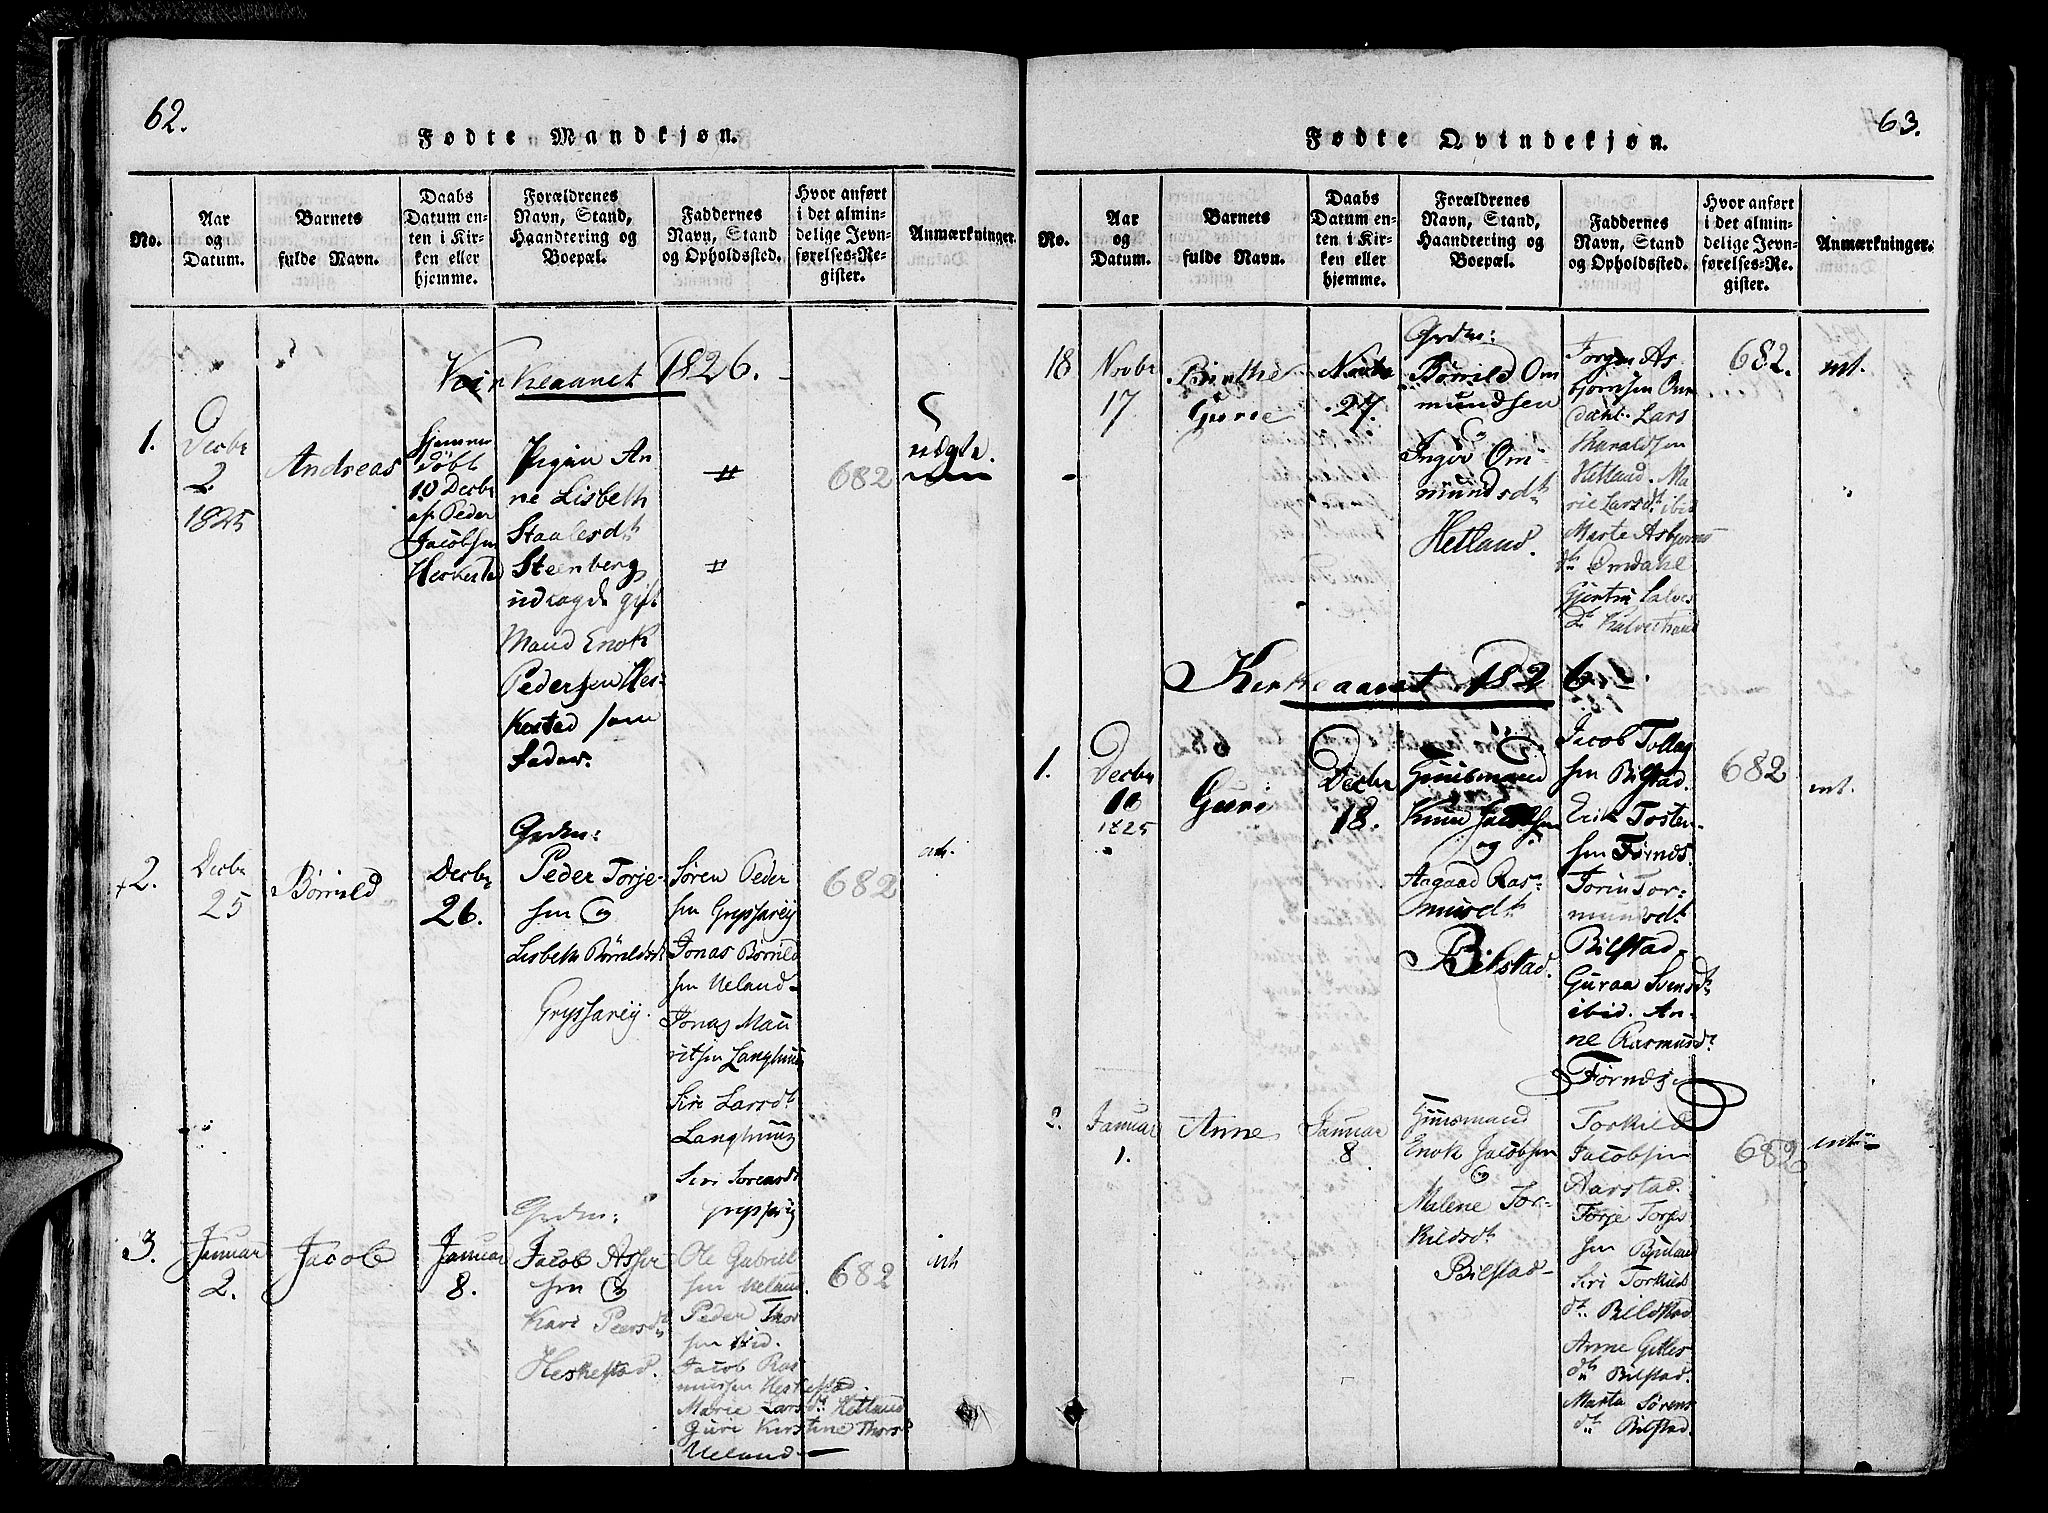 62.
Fødte Mandkjøn.
No.
Aar
og
Datum.
Barnets
fulde Navn.
Daabs
Datum en-
ten i Kir-
ken eller
hjemme.
Forældrenes
Navn, Stand,
Haandtering og
Boepæl.
Faddernes
Navn, Stand
og Opholdssted.
Hvor anført
i det almin-
delige Jevn-
førelses-Re-
gister.
Anmærkninger.
Kirkeaaret 1826.
1.
Decbr
2
1825
Andreas
Hjemme
döbt
10 Decbr
af Peder
Jacobsen
Heskestad
Pigen An
ne Lisbeth
Staalesdt
Steenberg
udlagde gift
Mand Enok
Pedersen Hes-
kestad som
Fader.
682
udgte.
2.
Decbr
25
Börrild
Decbr
26.
Grdm:
Peder Torje-
sen og
Lisbeth Börrildsdt
Gryssereij.
Sören Peder
sen Gryssereij
Jonas Börrild
sen Ueland
Jonas Mau
ritsen Langhuus
Siri Larsdt
Langhuus
Siri
682
int.
3.
Januar
2.
Jacob
Januar
8.
Grdm:
Jacob Asser
sen og
Kari Peersdt
Heskestad.
Ole Gabriel
sen Ueland
Peder Thor
sen ibid.
Jacob Ras
mussen Heskestad
Marie Larsdt Hetland
Guri Kirstine Thorsd
Ueland
682
int
63.
Fødte Qvindekjøn.
No.
Aar
og
Datum.
Barnets
fulde Navn.
Daabs
Datum en-
ten i Kir-
ken eller
hjemme.
Forældrenes
Navn, Stand,
Haandtering og
Boepæl.
Faddernes
Navn, Stand
og Opholdssted.
Hvor anført
i det almin-
delige Jevn-
førelses-Re-
gister.
Anmærkninger.
18
Novbr
17
Birthe
Gurie
Novbr
27.
Grdm:
Börrild Om
mundsen
og
Inger Om-
mundsdt
Hetland.
Jorgen As
bjornsen Om
dahl. Lars
Haraldsen
Hetland. Ma
rie Larsdt ibid
Marte Asbjorns
dt Omdahl
682.
int.
Kirkeaaret 1826.
1.
Decbr
10
1825
Guri
Decbr
18.
Huusmand
Knud Jacobsen
og
Aagaad Ras-
musdt
Bilstad.
Jacob Tollag
sen Bilstad.
Erik Tosten-
sen Förnds.
Torin Tor-
mundsdt
Bilstad
Guraa Svensdt
ibid. An-
ne Rasmusdt
Förnds
682
int.
2.
Januar
1.
Anne
Januar
8
Huusmand
Enok Jacobsen
og
Malene Tor-
kildsdt
Bilstad
Torkild
Jacobsen
Aarstad.
Torje Torjes
sen
Siri Torkilds
dt Bildstad
Anne Gitles
dt Bilstad.
Marta Sörens
dt Bilstad.
682
int